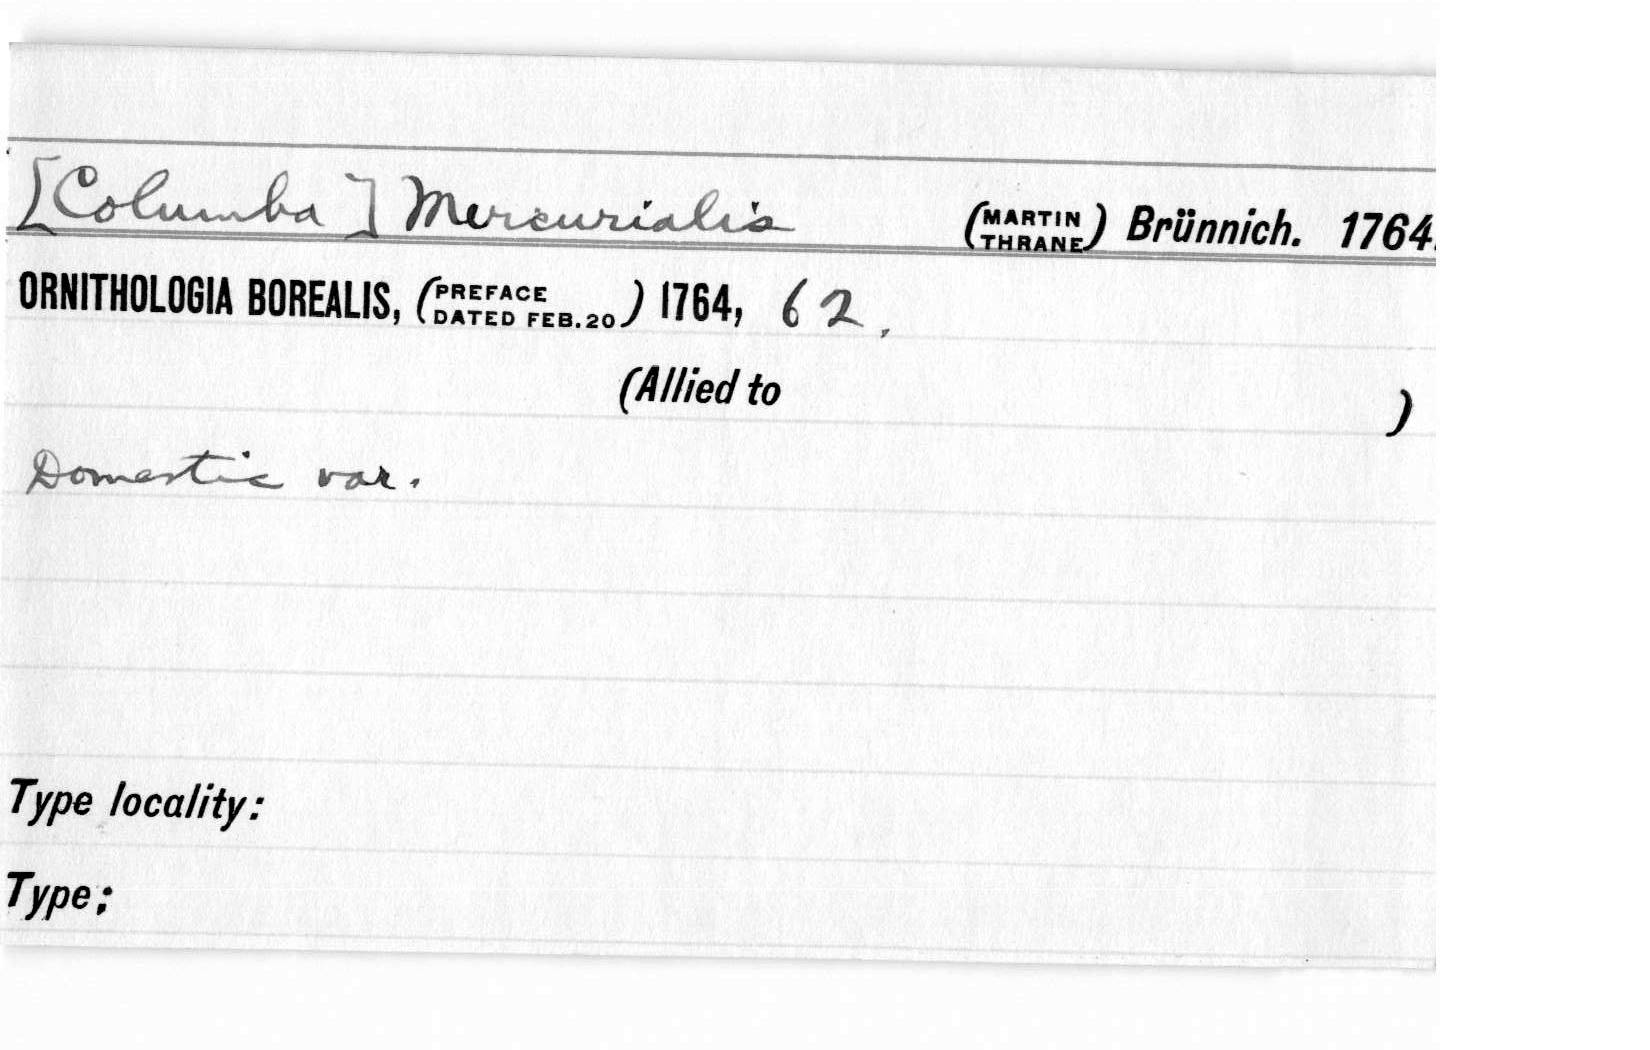 [Columba] Mercurialis (MARTIN THRANE) Brünnich. 1764.
ORNITHOLOGIA BOREALIS, (PREFACE DATED FEB. 20) 1764, 62.
(Allied to )
Domestic var.
Type locality:
Type: